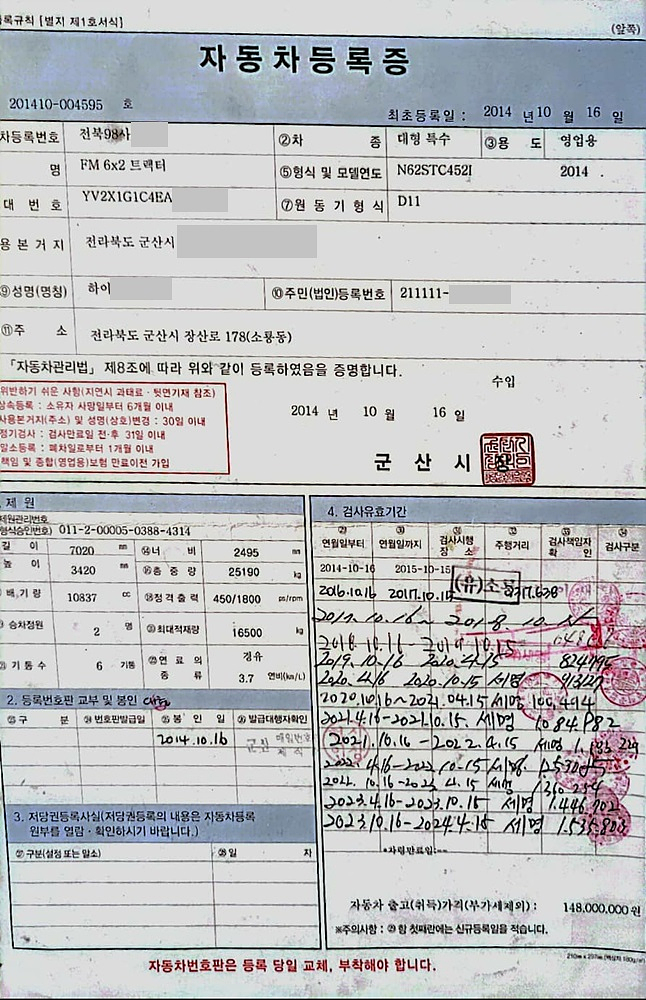 록규칙 [별지 제1호서식]
(앞쪽)
자동차등록증
201410-004595 호
최초등록일 : 2014 년 10 월 16 일
차등록번호 전북98사 ②차 종 대형 특수 ③용 도 영업용
명 FM 6x2 트랙터 ⑤형식 및 모델연도 N62STC452I 2014 .
대 번 호 YV2X1G1C4EA ⑦원 동 기 형 식 D11
용 본 거 지 전라북도 군산시
⑨성명(명칭) 하이 ⑩주민(법인)등록번호 211111-
⑪주 소 전라북도 군산시 장산로 178(소룡동)
「자동차관리법」 제8조에 따라 위와 같이 등록하였음을 증명합니다.
수입
위반하기 쉬운 사항(지연시 과태료 · 뒷면기재 참조)
상속등록 : 소유자 사망일부터 6개월 이내
사용본거지(주소) 및 성명(상호)변경 : 30일 이내
정기검사 : 검사만료일 전·후 31일 이내
말소등록 : 폐차일로부터 1개월 이내
책임 및 종합(영업용)보험 만료이전 가입
2014 년 10 월 16 일
군 산 시 장
제 원
제원관리번호
형식승인번호) 011-2-00005-0388-4314
길 이 7020 mm ⑭너 비 2495 mm
높 이 3420 mm ⑯총 중 량 25190 kg
배 기 량 10837 cc ⑱정격출력 450/1800 ps/rpm
승차정원 2 명 ⑳최대적재량 16500 kg
기 통 수 6 기통 연 료 의 종 류 경유 3.7 연비(km/L)
2. 등록번호판 교부 및 봉인
구 분 번호판발급일 봉 인 일 발급대행자확인
2014.10.16
3. 저당권등록사실(저당권등록의 내용은 자동차등록
원부를 열람 · 확인하시기 바랍니다.)
구분(설정 또는 말소) 일 자
4. 검사유효기간
연월일부터 연월일까지 검사시행장소 주행거리 검사책임자확인 검사구분
2014-10-16 2015-10-15
2016.10.16 2017.10.15 (유)소룡
2017.10.16 ~ 2018.10.15
2018.10.16 2019.10.15
2019.10.16 2020.4.15
2020.4.16 2020.10.15 세명
2020.10.16~2021.04.15 세명
2021.4.16-2021.10.15. 세명
2021.10.16-2022.4.15 세명
2022.4.16-2022.10.15 세명
2022.10.16-2023.4.15 세명
2023.4.16-2023.10.15 세명 1.446.702
2023.10.16-2024.4.15 세명
*차령만료일:--
자동차 출고(취득)가격(부가세제외) : 148.000.000 원
※주의사항 : ㉙ 항 첫째란에는 신규등록일을 적습니다.
자동차번호판은 등록 당일 교체, 부착해야 합니다.